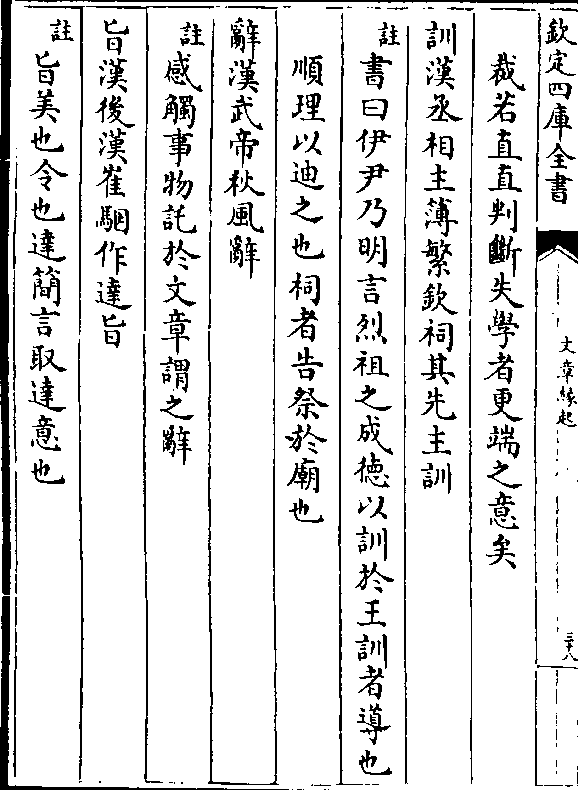 欽定四庫全書
文章縁起
三十八
裁若直直判斷失學者更端之意矣
訓漢丞相主簿繁欽祠其先主訓
註書曰伊尹乃明言烈祖之成徳以訓於王訓者導也
順理以迪之也祠者告祭於廟也
辭漢武帝秋風辭
註感觸事物託於文章謂之辭
旨漢後漢崔駰作達旨
註旨美也令也達簡言取達意也